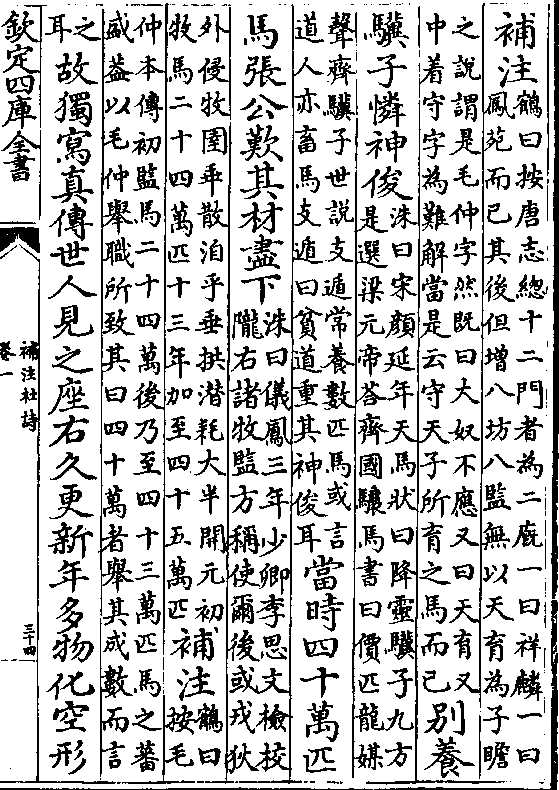 補注鶴曰按唐志總十二門者為二廐一曰祥麟一曰
鳳苑而已其後但增八坊八監無以天育為子瞻
之說謂是毛仲字然既曰大奴不應又曰天育又
中着守字為難解當是云守天子所育之馬而已別養
驥子憐神俊洙曰宋顏延年天馬狀曰降靈驥子九方
是選梁元帝荅齊國驤馬書曰價匹龍媒
聲齊驥子世說支遁常養數匹馬或言
道人亦畜馬支遁曰貧道重其神俊耳當時四十萬匹
馬張公歎其材盡下洙曰儀鳳三年少卿李思文檢校
隴右諸牧監方稱使爾後或戎狄
外侵牧圉乖散洎乎垂拱潛耗大半開元初
牧馬二十四萬匹十三年加至四十五萬匹補注鶴曰
按毛
仲本傳初監馬二十四萬後乃至四十三萬匹馬之蕃
盛葢以毛仲舉職所致其曰四十萬者舉其成數而言
之耳故獨寫真傳世人見之座右久更新年多物化空形
欽定四庫全書
補注杜詩
卷一
三十四